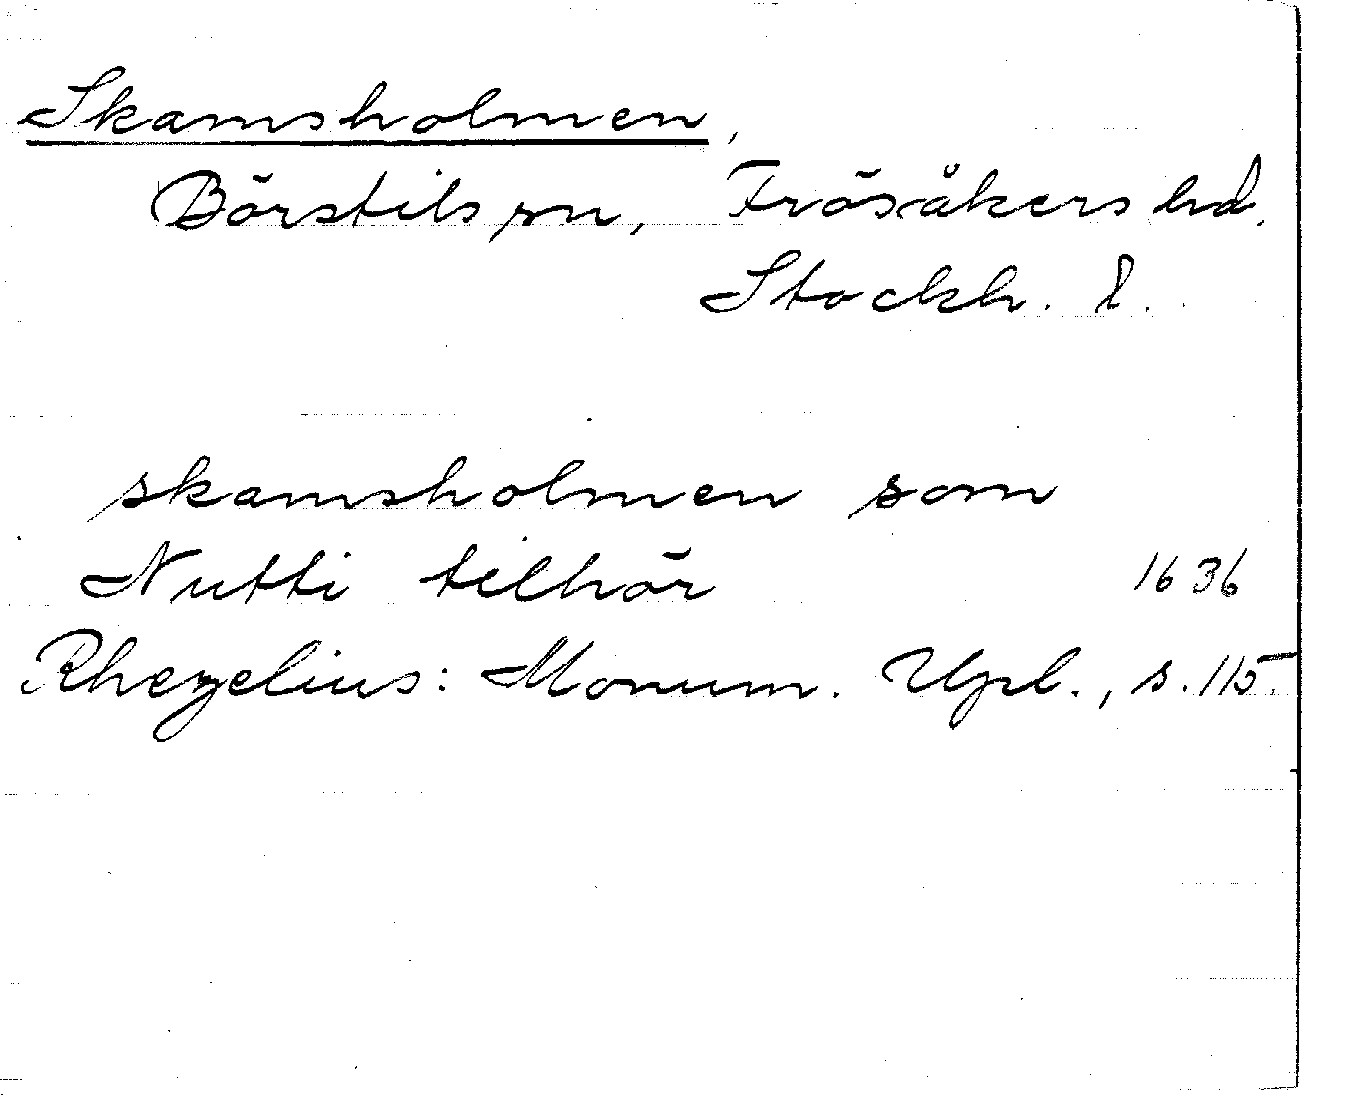 Skamsholmen,
Börstils sn, Frösåkers hd.
Stockh. l.
skamsholmen som
Nutti tilhör 1636
Rhezelius: Monum. Upl., s. 115.